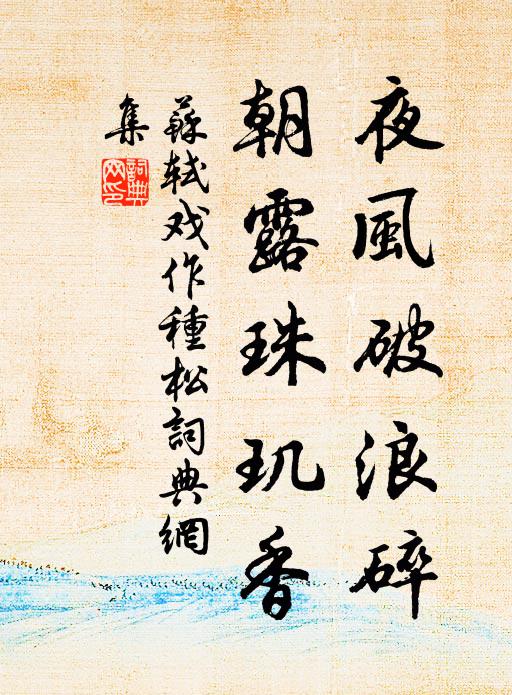 夜風破浪碎
朝露珠玑香
蘇轼戏作種松詞典網
集
詞典网印